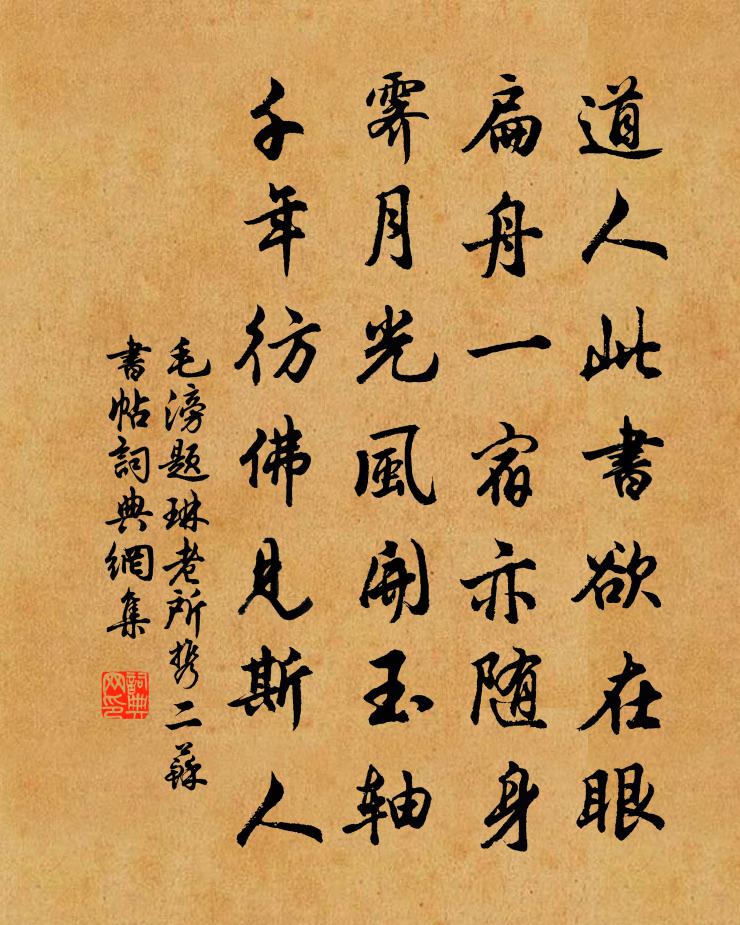 道人此書欲在眼
扁舟一宿亦随身
霽月光風開玉轴
千年彷佛見斯人
毛滂题琳老所携二蘇
書帖詞典網集
詞典网印